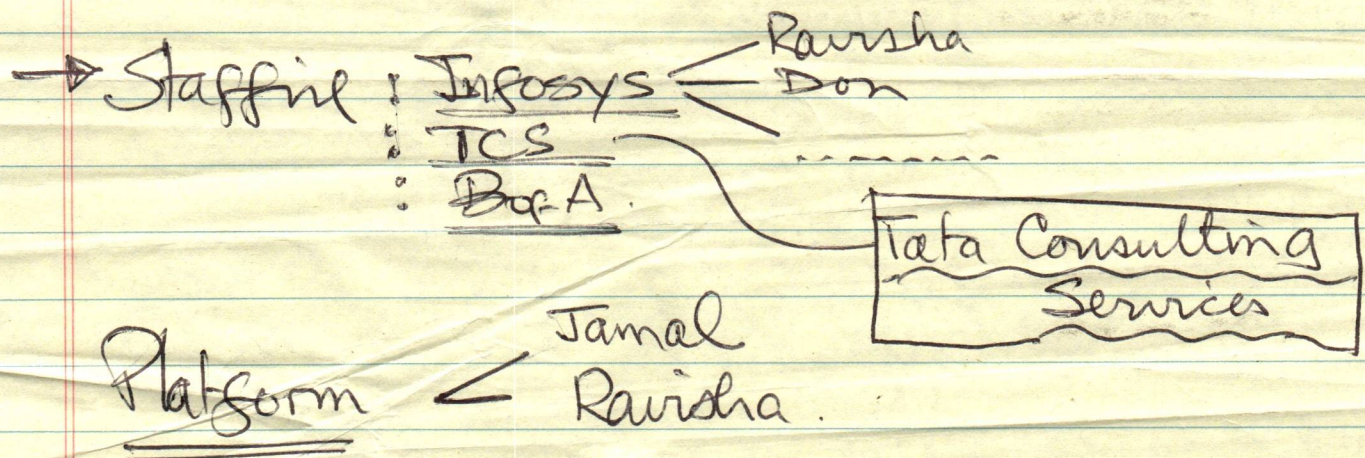 → Staffing : Infosys < Ravisha
Don
: TCS
: BofA.
Tata Consulting
Services
Platform < Jamal
Ravisha.